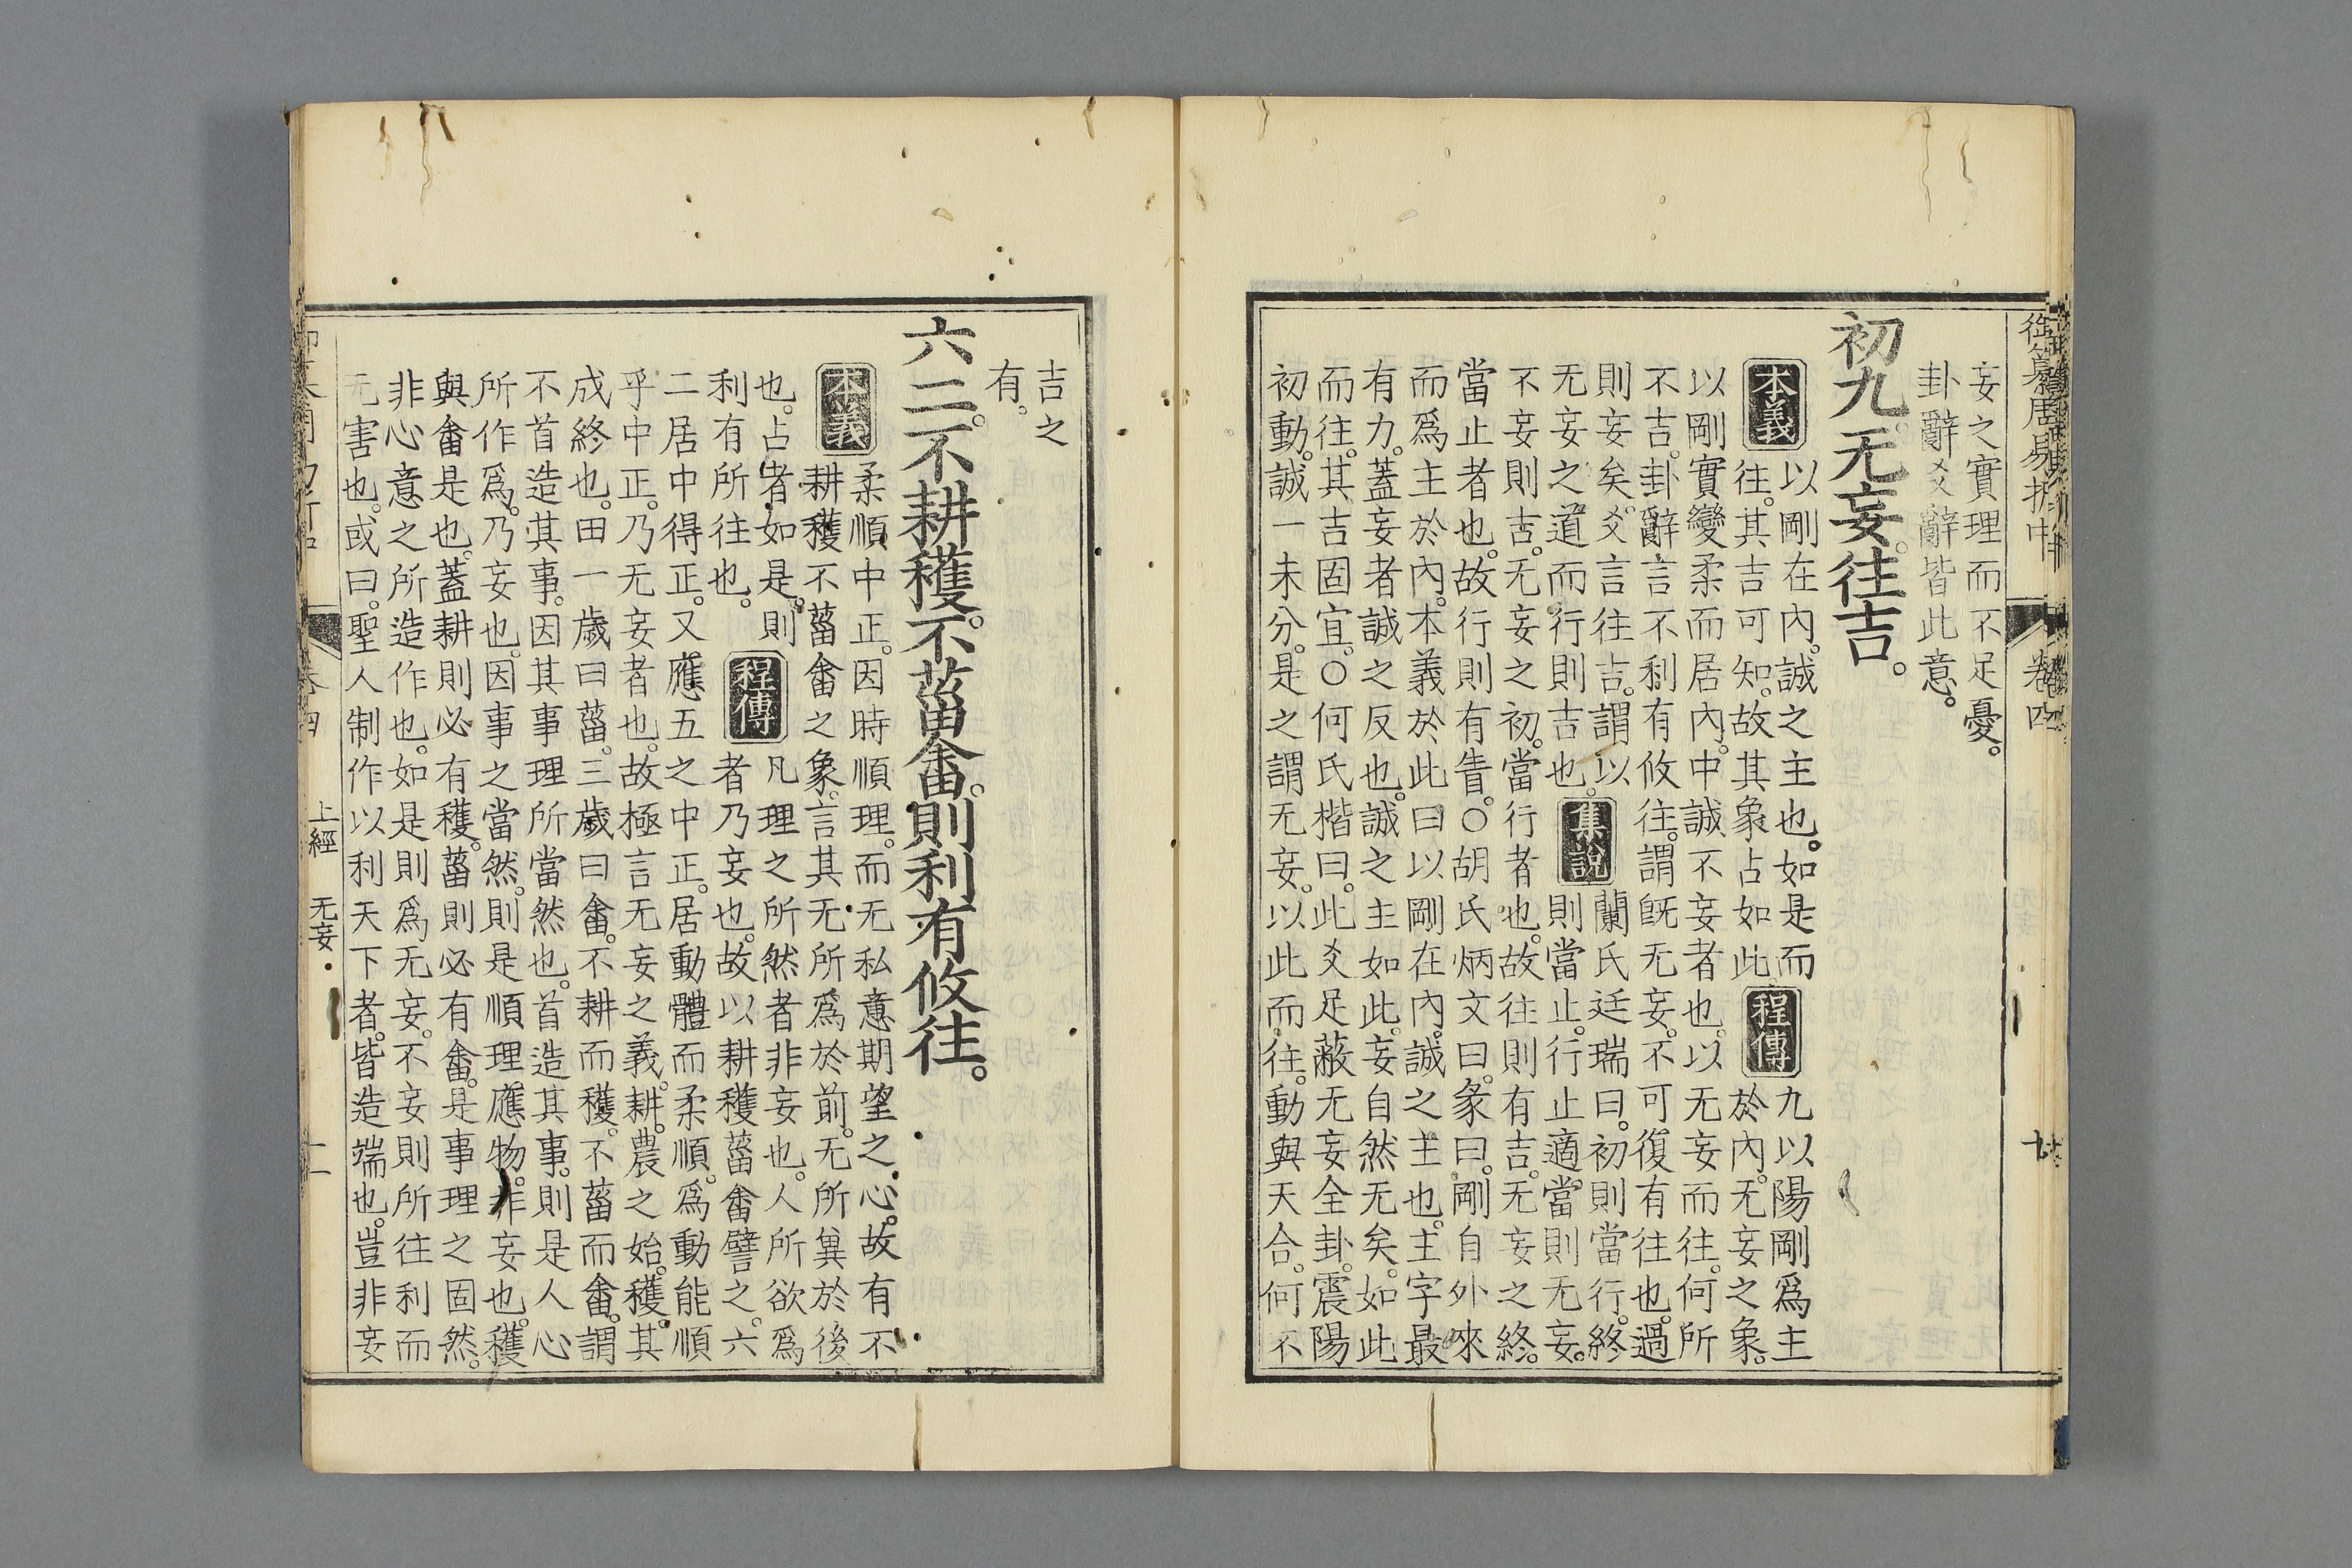 御纂周易折中
卷四
妄之實理而不足憂。
卦辭爻辭皆此意。
初九。无妄。往吉。
本義
以剛在內。誠之主也。如是而
往。其吉可知。故其象占如此。
程傳
九以陽剛爲主
於內。无妄之象。
以剛實變柔而居內。中誠不妄者也。以无妄而往。何所
不吉。卦辭言不利有攸往。謂旣无妄。不可復有往也。過
則妄矣。爻言往吉。謂以
无妄之道而行則吉也。
集說
蘭氏廷瑞曰。初則當行。終
則當止。行止適當。則无妄。
不妄則吉。无妄之初。當行者也。故往則有吉。无妄之終。
當止者也。故行則有眚。○胡氏炳文曰。彖曰。剛自外來
而爲主於內。本義於此曰以剛在內。誠之主也。主字最
有力。蓋妄者誠之反也。誠之主如此。妄自然无矣。如此
而往。其吉固宜。○何氏楷曰。此爻足蔽无妄全卦。震陽
初動。誠一未分。是之謂无妄。以此而往。動與天合。何不
吉之
有。
六二。不耕穫。不菑畬。則利有攸往。
本義
柔順中正。因時順理。而无私意期望之心。故有不
耕穫不菑畬之象。言其无所爲於前。无所兾於後
也。占者如是。則
利有所往也。
程傳
凡理之所然者非妄也。人所欲爲
者乃妄也。故以耕穫菑畬譬之。六
二居中得正。又應五之中正。居動體而柔順。爲動能順
乎中正。乃无妄者也。故極言无妄之義。耕。農之始。穫。其
成終也。田一歲曰菑。三歲曰畬。不耕而穫。不菑而畬。謂
不首造其事。因其事理所當然也。首造其事。則是人心
所作爲。乃妄也。因事之當然。則是順理應物。非妄也。穫
與畬是也。蓋耕則必有穫。菑則必有畬。是事理之固然。
非心意之所造作也。如是則爲无妄。不妄則所往利而
无害也。或曰。聖人制作以利天下者。皆造端也。豈非妄
卷四
上經 无妄